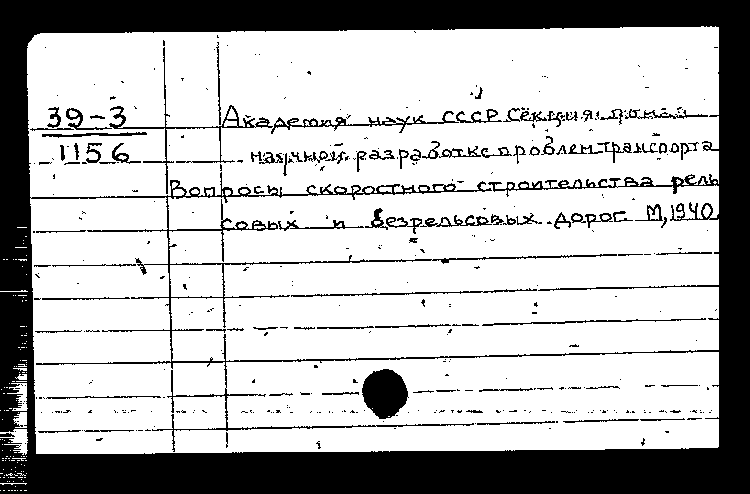 39-3
1156
Академия наук СССР Секция по
научной разработке проблем транспорта
Вопросы скоростного строительства рель
совых и безрельсовых дорог. М, 1940.